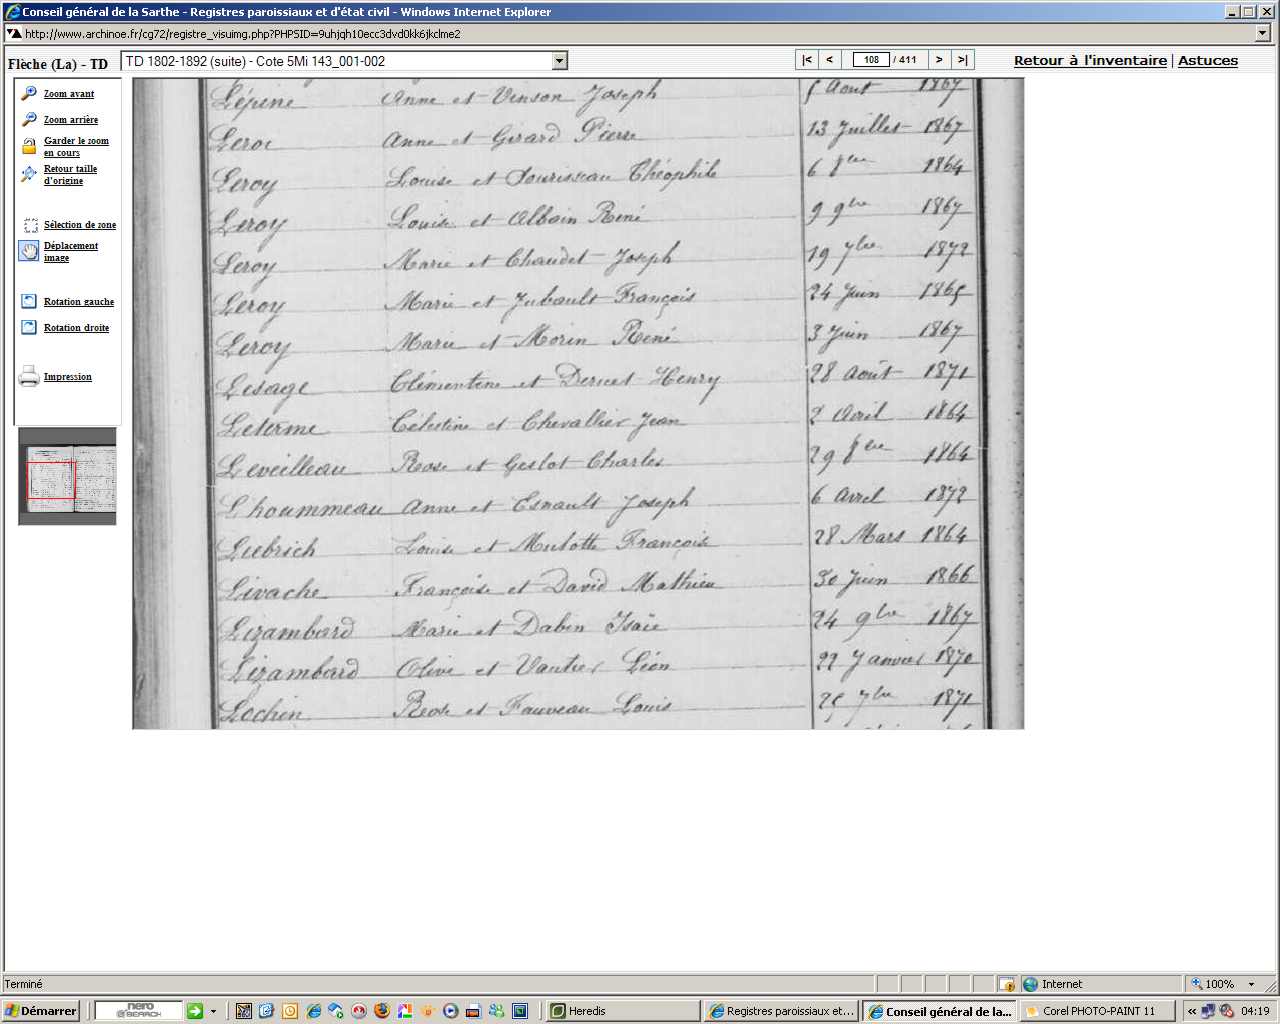 Conseil général de la Sarthe - Registres paroissiaux et d'état civil - Windows Internet Explorer
http://www.archinoe.fr/cg72/registre_visuimg.php?PHPSID=9uhjqh10ecc3dvd0kk6jkclme2
Flèche (La) - TD TD 1802-1892 (suite) - Cote 5Mi 143_001-002 |< < 108 / 411 > >| Retour à l'inventaire | Astuces
Zoom avant
Zoom arrière
Garder le zoom
en cours
Retour taille
d'origine
Sélection de zone
Déplacement
image
Rotation gauche
Rotation droite
Impression
Lépine Anne et Vinson Joseph 5 Aout 1867
Leroi Anne et Girard Pierre 13 Juillet 1867
Leroy Louise et Sourisseau Théophile 6 8bre 1864
Leroy Louise et Albain René 9 9bre 1867
Leroy Marie et Chaudet Joseph 19 7bre 1872
Leroy Marie et Jubault François 24 Juin 1865
Leroy Marie et Morin René 3 Juin 1867
Lesage Clémentine et Henry 28 Août 1871
Leterme Célestine et Chevallier Jean 2 Avril 1864
Leveilleau Rose et Geslot Charles 29 8bre 1864
Lhoummeau Anne et Esnault Joseph 6 Avril 1872
Liebrich Louise et Mulotte François 28 Mars 1864
Livache Françoise et David Mathieu 30 Juin 1866
Lizambard Marie et Dabin Isaïe 24 9bre 1867
Lizambard Olive et Vautier Léon 22 Janvier 1870
Lochin Rose et Fauveau Louis 25 7bre 1871
Terminé Internet 100%
Démarrer nero SEARCH Heredis Registres paroissiaux et... Conseil général de la... Corel PHOTO-PAINT 11 « 04:19